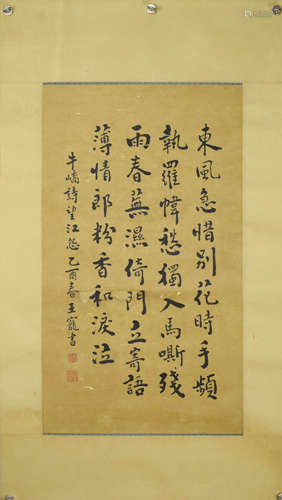 東風急惜别花時手頻
執羅幃愁獨入馬嘶殘
雨春蕪濕倚門立寄語
薄情郎粉香和淚泣
牛嶠詩望江怨乙酉春王寵書